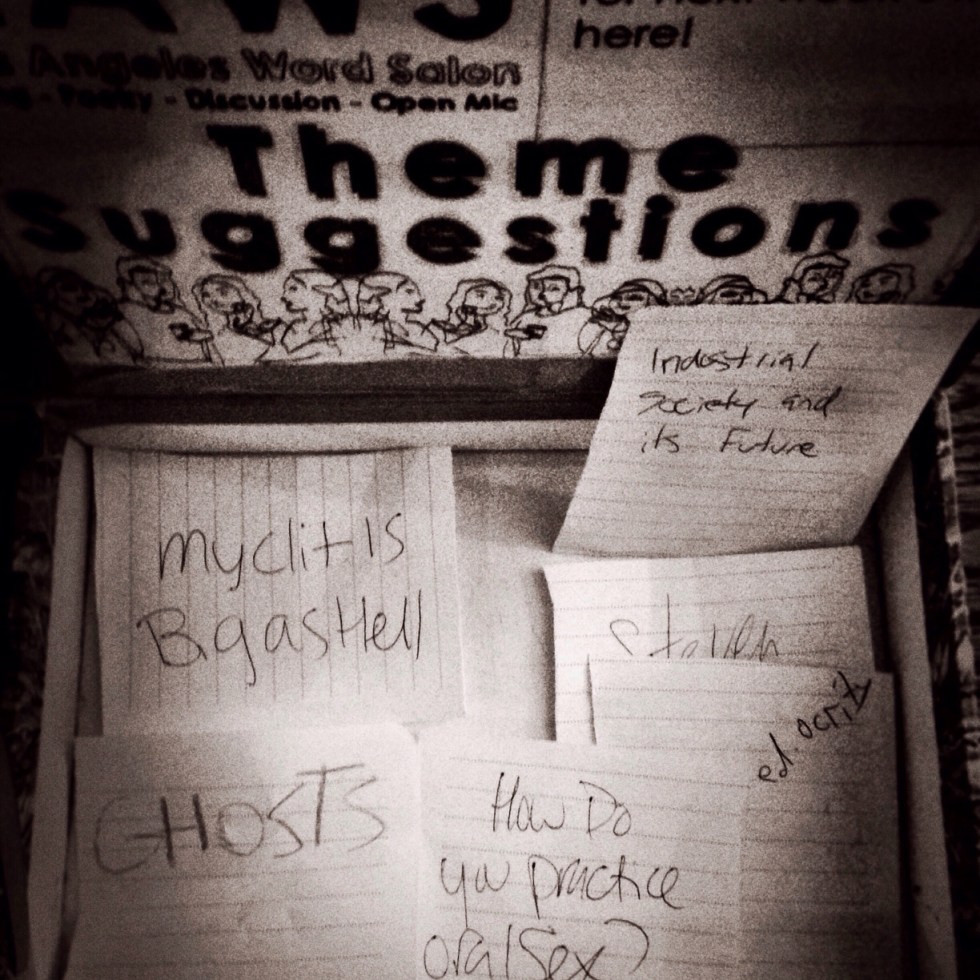 AWS
here!
Angeles Word Salon
- Discussion - Open Mic
Theme
Suggestions
Industrial
Society and
its Future
my clit Is
Big as Hell
Stolen
ediocrity
GHOSTS
How Do
you practice
oral Sex?